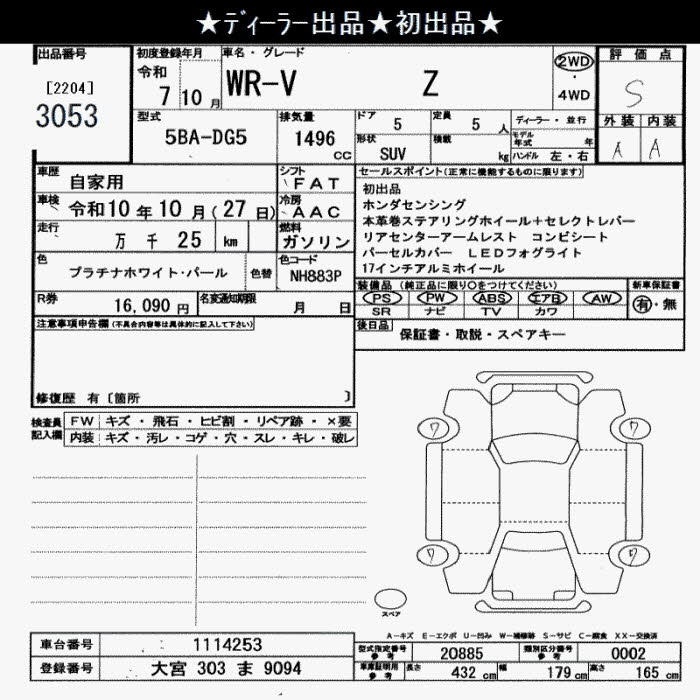 ★ディーラー出品★初出品★
出品番号
[2204]
3053
初度登録年月
令和
7 10 月
車名・グレード
WR-V Z
2WD
・
4WD
評価点
S
外装 内装
A A
型式
5BA-DG5
排気量
1496
cc
ドア
5
定員
5 人
形状
SUV
積載
kg
ディーラー・並行
モデル年式 年
ハンドル 左・右
車歴
自家用
シフト
FAT
車検
令和10年10月(27日)
冷房
AAC
走行
万 千 25 km
燃料
ガソリン
色
プラチナホワイト・パール
色替
色コード
NH883P
R券
16,090 円
名変通知期限
月 日
セールスポイント(正常に機能するものに限ります)
初出品
ホンダセンシング
本革巻ステアリングホイール+セレクトレバー
リアセンターアームレスト コンビシート
パーセルカバー LEDフォグライト
17インチアルミホイール
装備品(純正品に限り○をつけてください)
PS PW ABS エアB AW
SR ナビ TV カワ
新車保証書
有・無
後日品
保証書・取説・スペアキー
注意事項申告欄(不具合内容等は具体的に記入して下さい)
修復歴 有〔箇所 〕
検査員記入欄
FW キズ・飛石・ヒビ割・リペア跡・×要
内装 キズ・汚レ・コゲ・穴・スレ・キレ・破レ
ワ ワ
ワ ワ
スペア
A-キズ E-エクボ U-凹み W-補修跡 S-サビ C-腐食 XX-交換済
車台番号 1114253
登録番号 大宮 303 ま 9094
型式指定番号参考 20885 類別区分番号参考 0002
車庫証明用参考 長さ 432 cm 幅 179 cm 高さ 165 cm